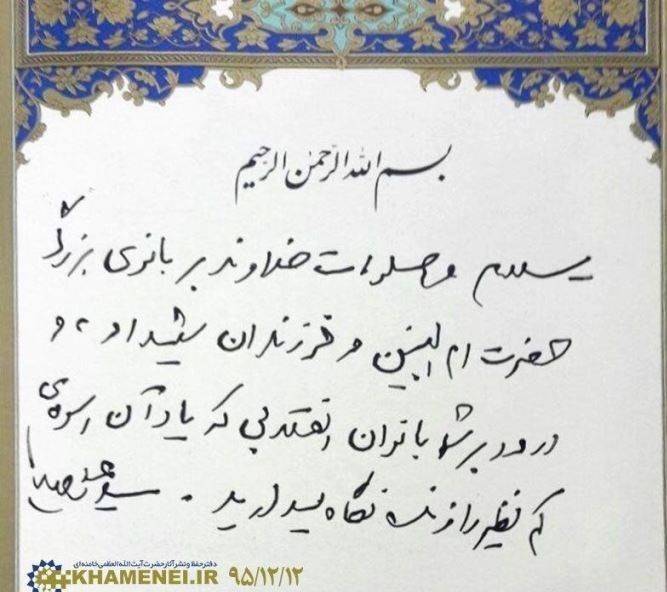 بسم الله الرحمن الرحیم
سلام و صلوات خداوند بر بانوی بزرگ
حضرت ام البنین و فرزندان شهید او، و
درود بر شما بانوان انقلابی که یاد آن اسوه‌ی
کم نظیر را زنده نگاه میدارید.
سید علی خامنه‌ای
دفتر حفظ و نشر آثار حضرت آیت‌الله العظمی خامنه‌ای
KHAMENEI.IR ۹۵/۱۲/۱۲